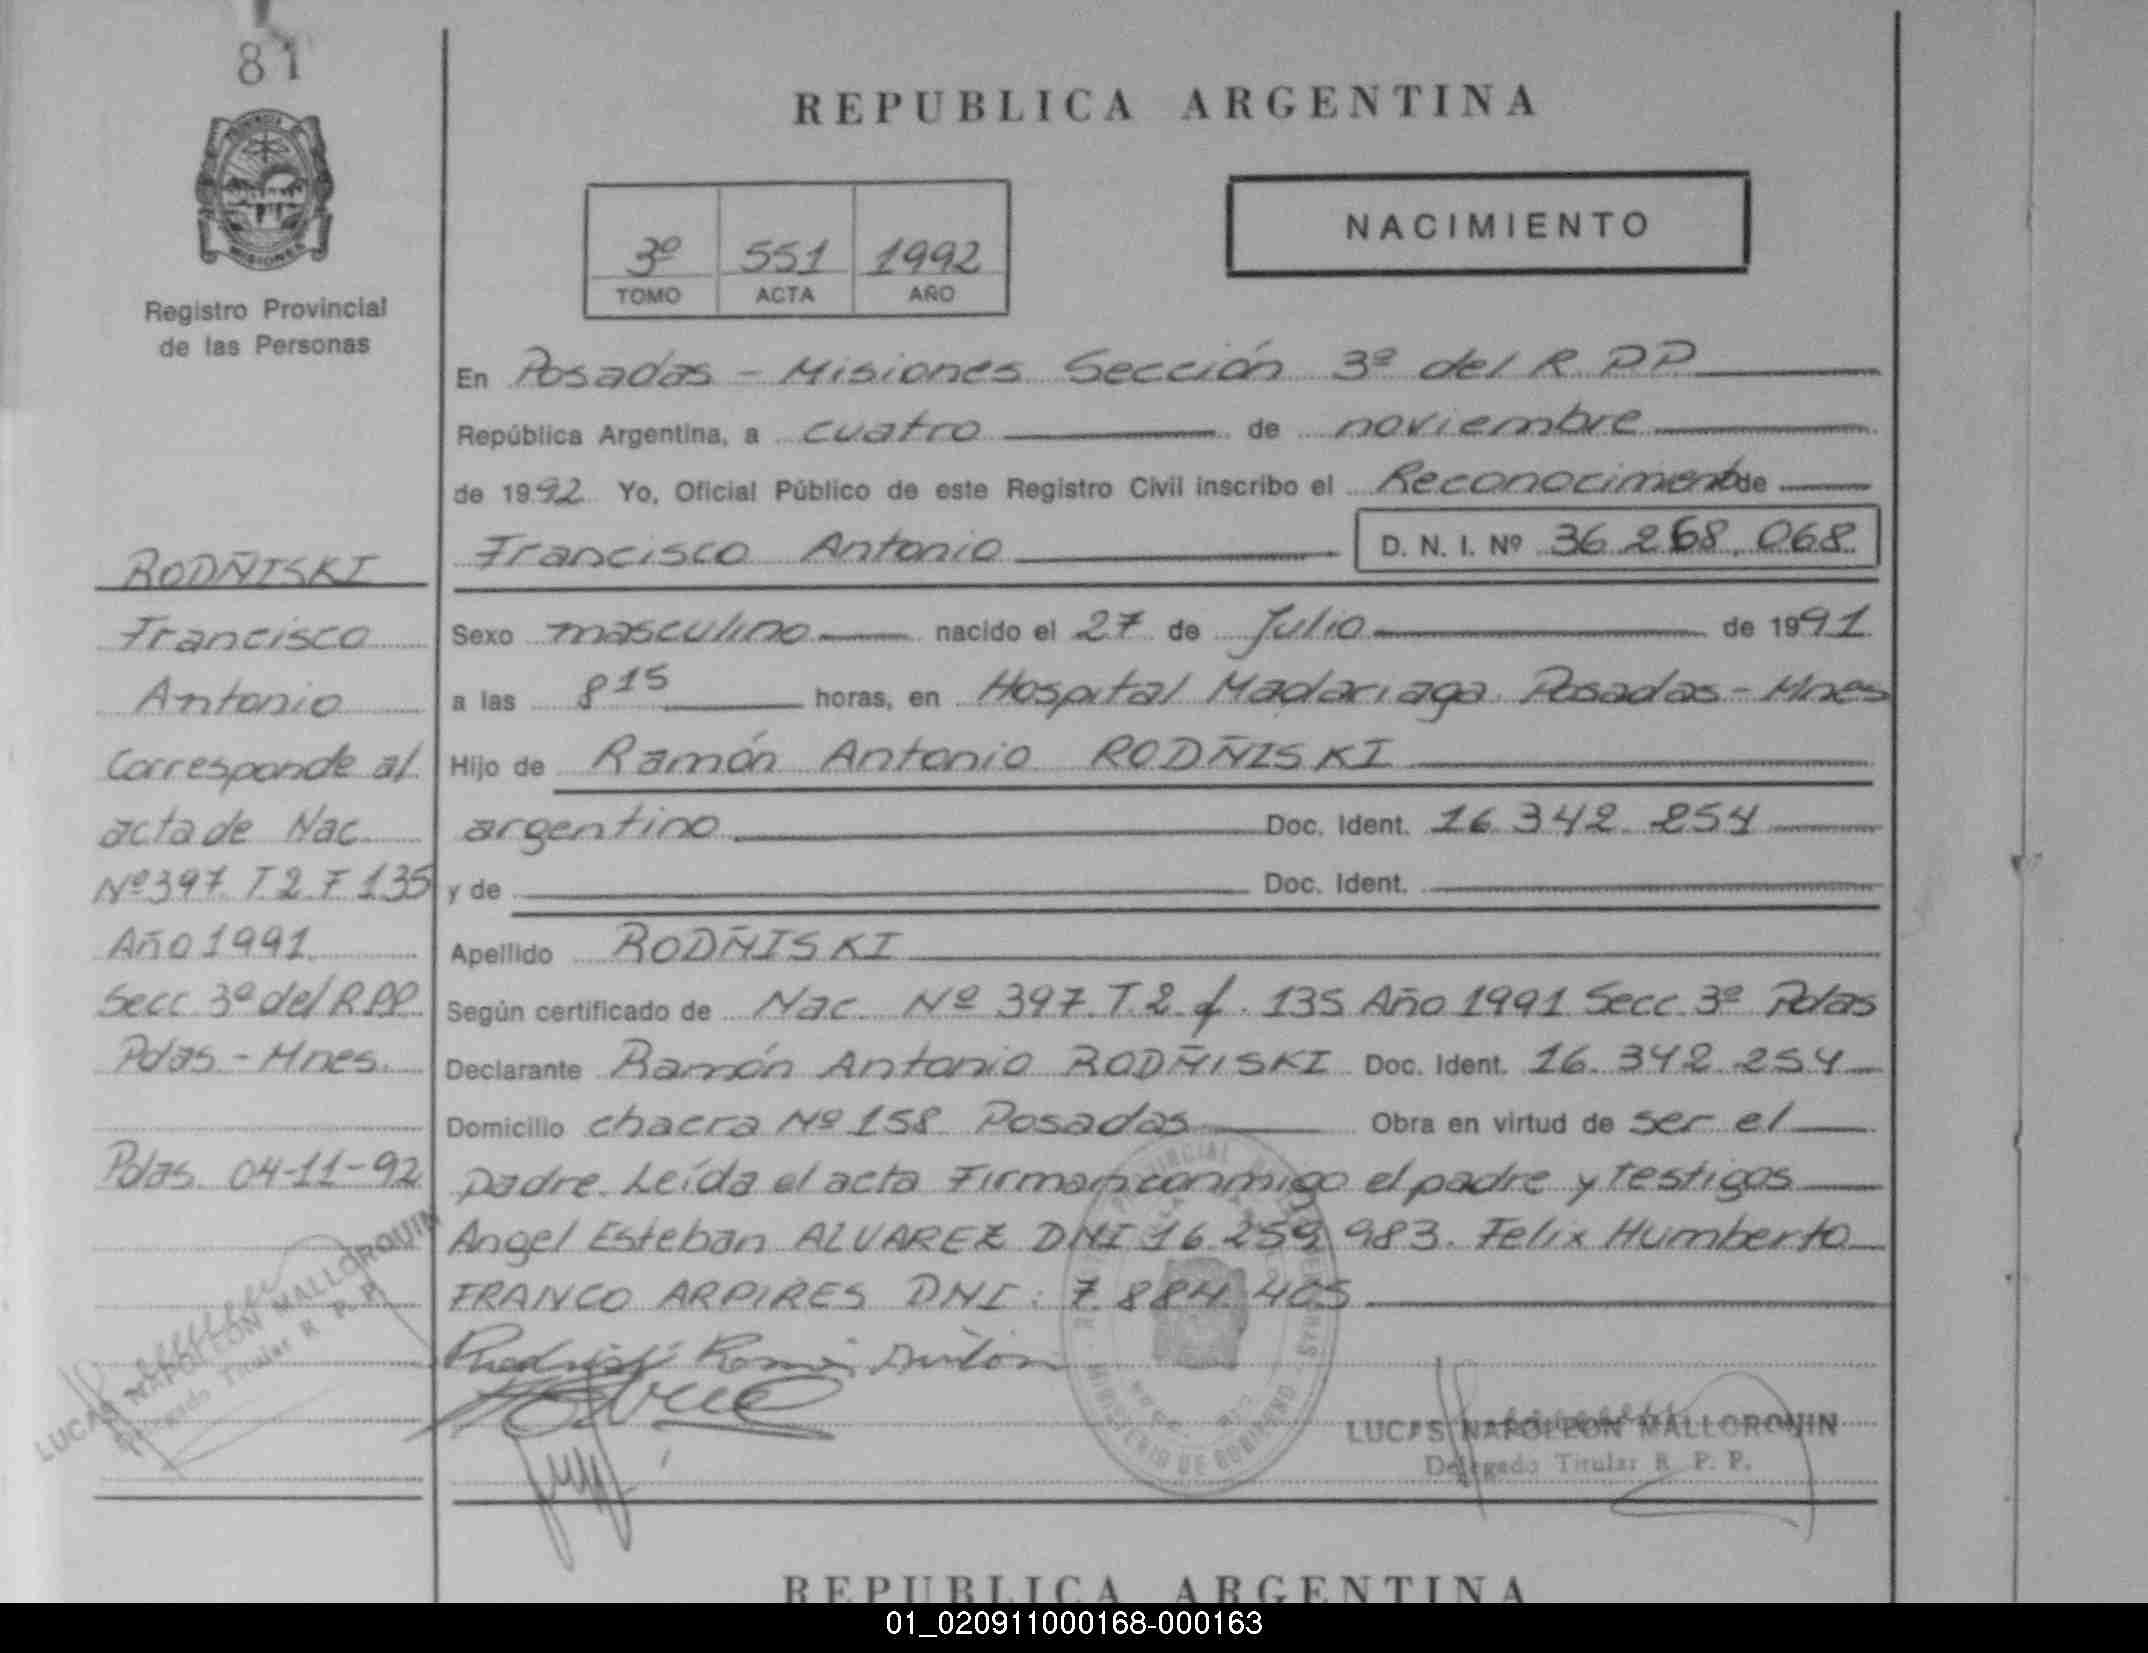 81
PROVINCIA
MISIONES
Registro Provincial
de las Personas
RODÑISKI
Francisco
Antonio
Corresponde al
acta de Nac.
Nº 397 T.2 F 135
Año 1991
Secc 3º del R.P.P.
Pdas - Mnes.
Pdas. 04-11-92
LUCAS NAPOLEON MALLORQUIN
Delegado Titular R. P. P.
REPUBLICA ARGENTINA
3º 551 1992
TOMO ACTA AÑO
NACIMIENTO
En Posadas - Misiones Sección 3º del R.P.P.
República Argentina, a cuatro de noviembre
de 1992 Yo, Oficial Público de este Registro Civil inscribo el Reconocimiento de
Francisco Antonio D. N. I. Nº 36.268.068
Sexo masculino nacido el 27 de Julio de 1991
a las 8 15 horas, en Hospital Madariaga Posadas - Mnes
Hijo de Ramón Antonio RODÑISKI
argentino Doc. Ident. 16.342.254
y de Doc. Ident.
Apellido RODÑISKI
Según certificado de Nac. Nº 397. T.2 f. 135 Año 1991 Secc 3º Pdas
Declarante Ramón Antonio RODÑISKI Doc. Ident. 16.342.254
Domicilio chacra Nº 158 Posadas Obra en virtud de ser el
padre. Leída el acta Firman conmigo el padre y testigos
Angel Esteban ALVAREZ DNI 16.259.983. Felix Humberto
FRANCO ARPIRES DNI: 7.884.405
MINISTERIO DE GOBIERNO
LUCAS NAPOLEON MALLORQUIN
Delegado Titular R. P. P.
REPUBLICA ARGENTINA
01_020911000168-000163